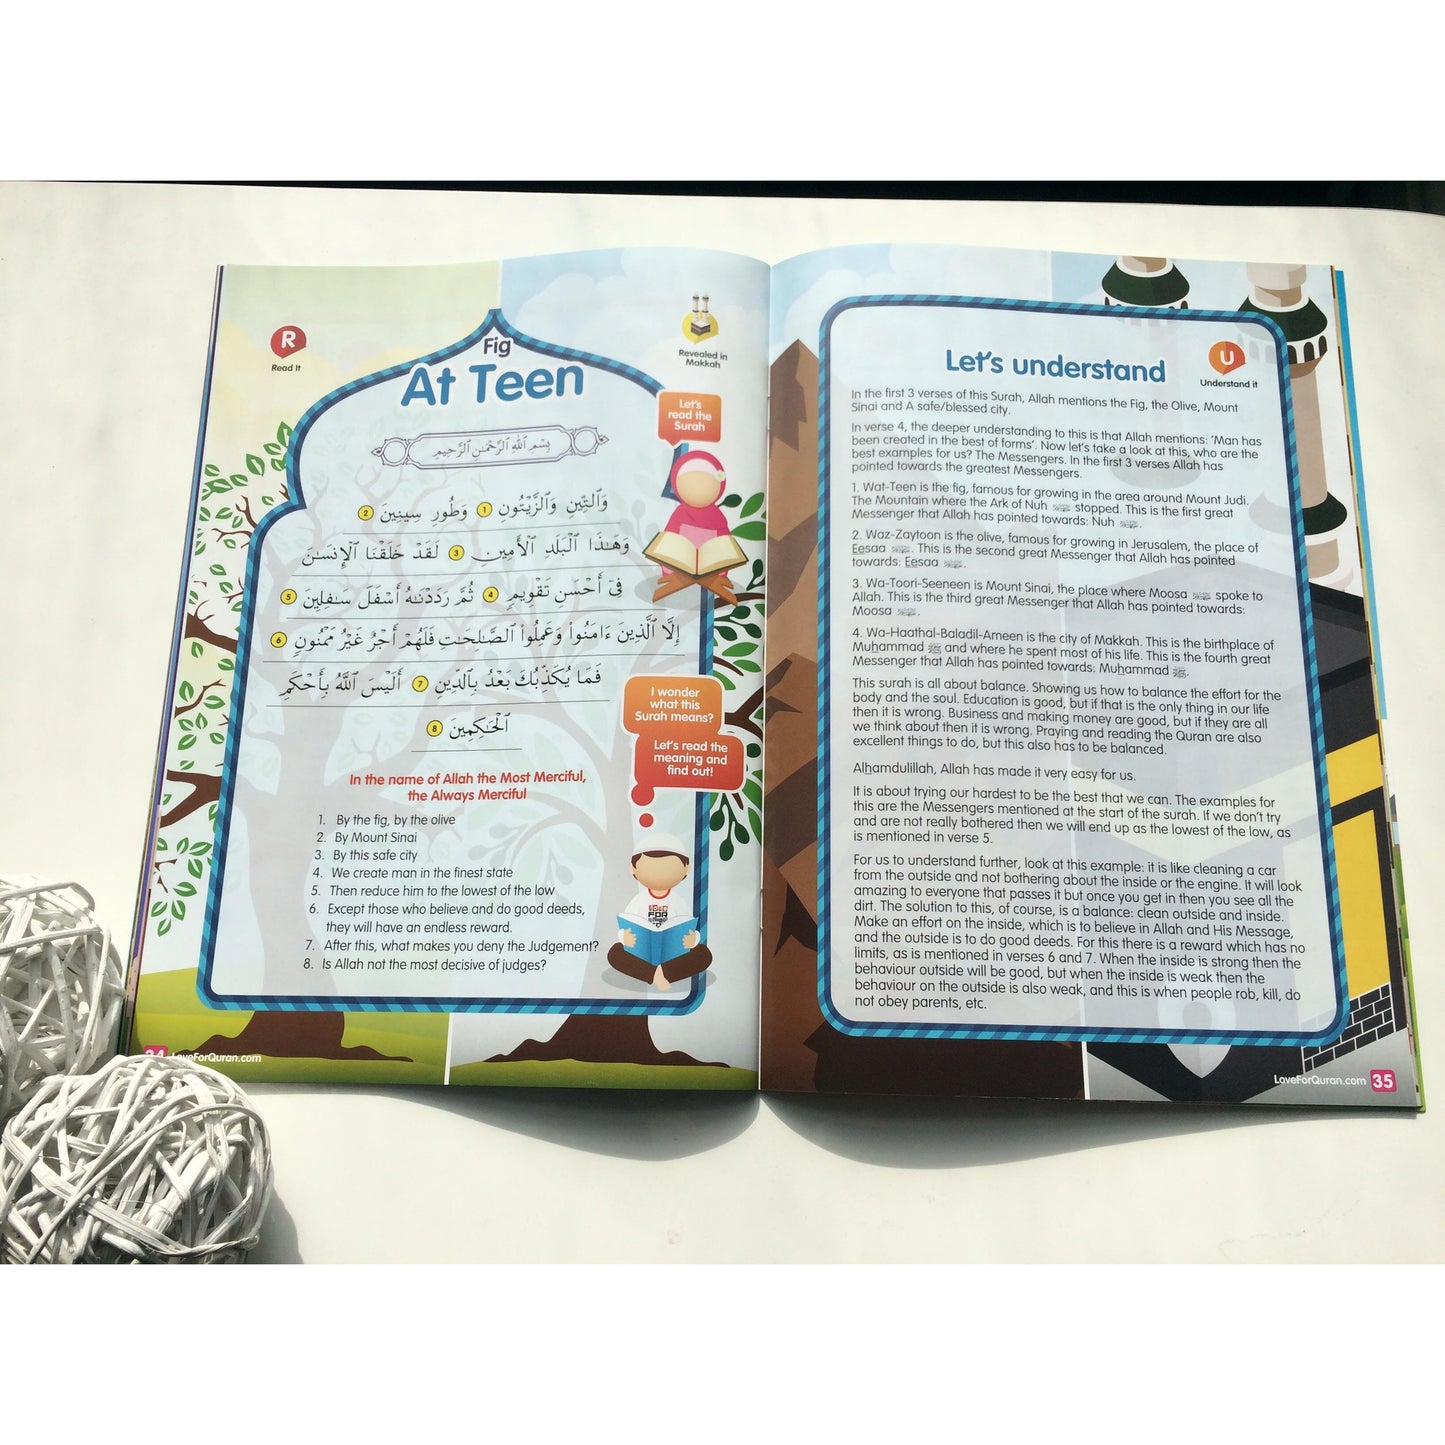 R
Read It
Fig
At Teen
Revealed in
Makkah
Let's
read the
Surah
بِسْمِ ٱللَّهِ ٱلرَّحْمَٰنِ ٱلرَّحِيمِ
وَٱلتِّينِ وَٱلزَّيْتُونِ 1 وَطُورِ سِينِينَ 2
وَهَٰذَا ٱلْبَلَدِ ٱلْأَمِينِ 3 لَقَدْ خَلَقْنَا ٱلْإِنسَٰنَ
فِىٓ أَحْسَنِ تَقْوِيمٍ 4 ثُمَّ رَدَدْنَٰهُ أَسْفَلَ سَٰفِلِينَ 5
إِلَّا ٱلَّذِينَ ءَامَنُوا۟ وَعَمِلُوا۟ ٱلصَّٰلِحَٰتِ فَلَهُمْ أَجْرٌ غَيْرُ مَمْنُونٍ 6
فَمَا يُكَذِّبُكَ بَعْدُ بِٱلدِّينِ 7 أَلَيْسَ ٱللَّهُ بِأَحْكَمِ
ٱلْحَٰكِمِينَ 8
I wonder
what this
Surah means?
Let's read the
meaning and
find out!
In the name of Allah the Most Merciful,
the Always Merciful
1. By the fig, by the olive
2. By Mount Sinai
3. By this safe city
4. We create man in the finest state
5. Then reduce him to the lowest of the low
6. Except those who believe and do good deeds,
they will have an endless reward.
7. After this, what makes you deny the Judgement?
8. Is Allah not the most decisive of judges?
FOR
34 LoveForQuran.com
Let's understand
U
Understand it
In the first 3 verses of this Surah, Allah mentions the Fig, the Olive, Mount
Sinai and A safe/blessed city.
In verse 4, the deeper understanding to this is that Allah mentions: 'Man has
been created in the best of forms'. Now let's take a look at this, who are the
best examples for us? The Messengers. In the first 3 verses Allah has
pointed towards the greatest Messengers.
1. Wat-Teen is the fig, famous for growing in the area around Mount Judi.
The Mountain where the Ark of Nuh stopped. This is the first great
Messenger that Allah has pointed towards: Nuh .
2. Waz-Zaytoon is the olive, famous for growing in Jerusalem, the place of
Eesaa . This is the second great Messenger that Allah has pointed
towards: Eesaa .
3. Wa-Toori-Seeneen is Mount Sinai, the place where Moosa spoke to
Allah. This is the third great Messenger that Allah has pointed towards:
Moosa .
4. Wa-Haathal-Baladil-Ameen is the city of Makkah. This is the birthplace of
Muhammad ﷺ and where he spent most of his life. This is the fourth great
Messenger that Allah has pointed towards: Muhammad ﷺ.
This surah is all about balance. Showing us how to balance the effort for the
body and the soul. Education is good, but if that is the only thing in our life
then it is wrong. Business and making money are good, but if they are all
we think about then it is wrong. Praying and reading the Quran are also
excellent things to do, but this also has to be balanced.
Alhamdulillah, Allah has made it very easy for us.
It is about trying our hardest to be the best that we can. The examples for
this are the Messengers mentioned at the start of the surah. If we don't try
and are not really bothered then we will end up as the lowest of the low, as
is mentioned in verse 5.
For us to understand further, look at this example: it is like cleaning a car
from the outside and not bothering about the inside or the engine. It will look
amazing to everyone that passes it but once you get in then you see all the
dirt. The solution to this, of course, is a balance: clean outside and inside.
Make an effort on the inside, which is to believe in Allah and His Message,
and the outside is to do good deeds. For this there is a reward which has no
limits, as is mentioned in verses 6 and 7. When the inside is strong then the
behaviour outside will be good, but when the inside is weak then the
behaviour on the outside is also weak, and this is when people rob, kill, do
not obey parents, etc.
LoveForQuran.com 35